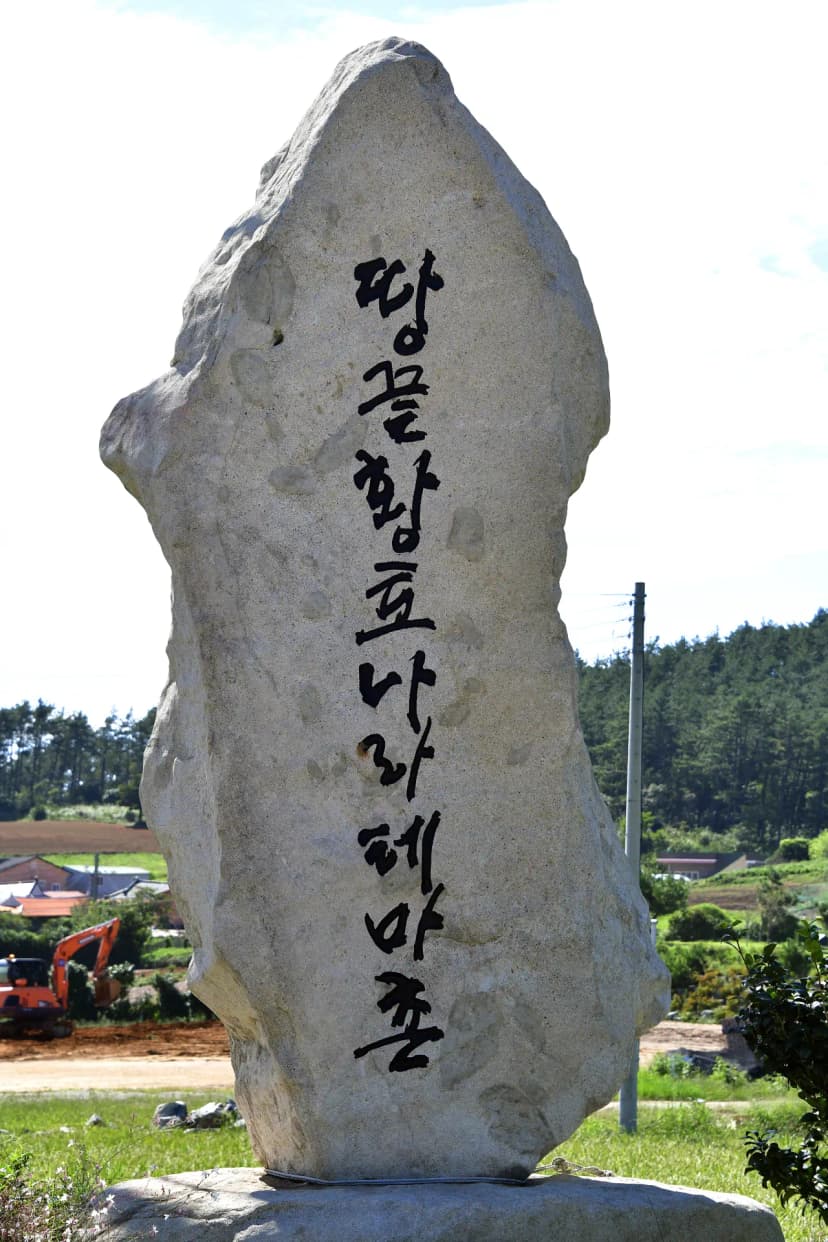 땅끝황토나라테마촌